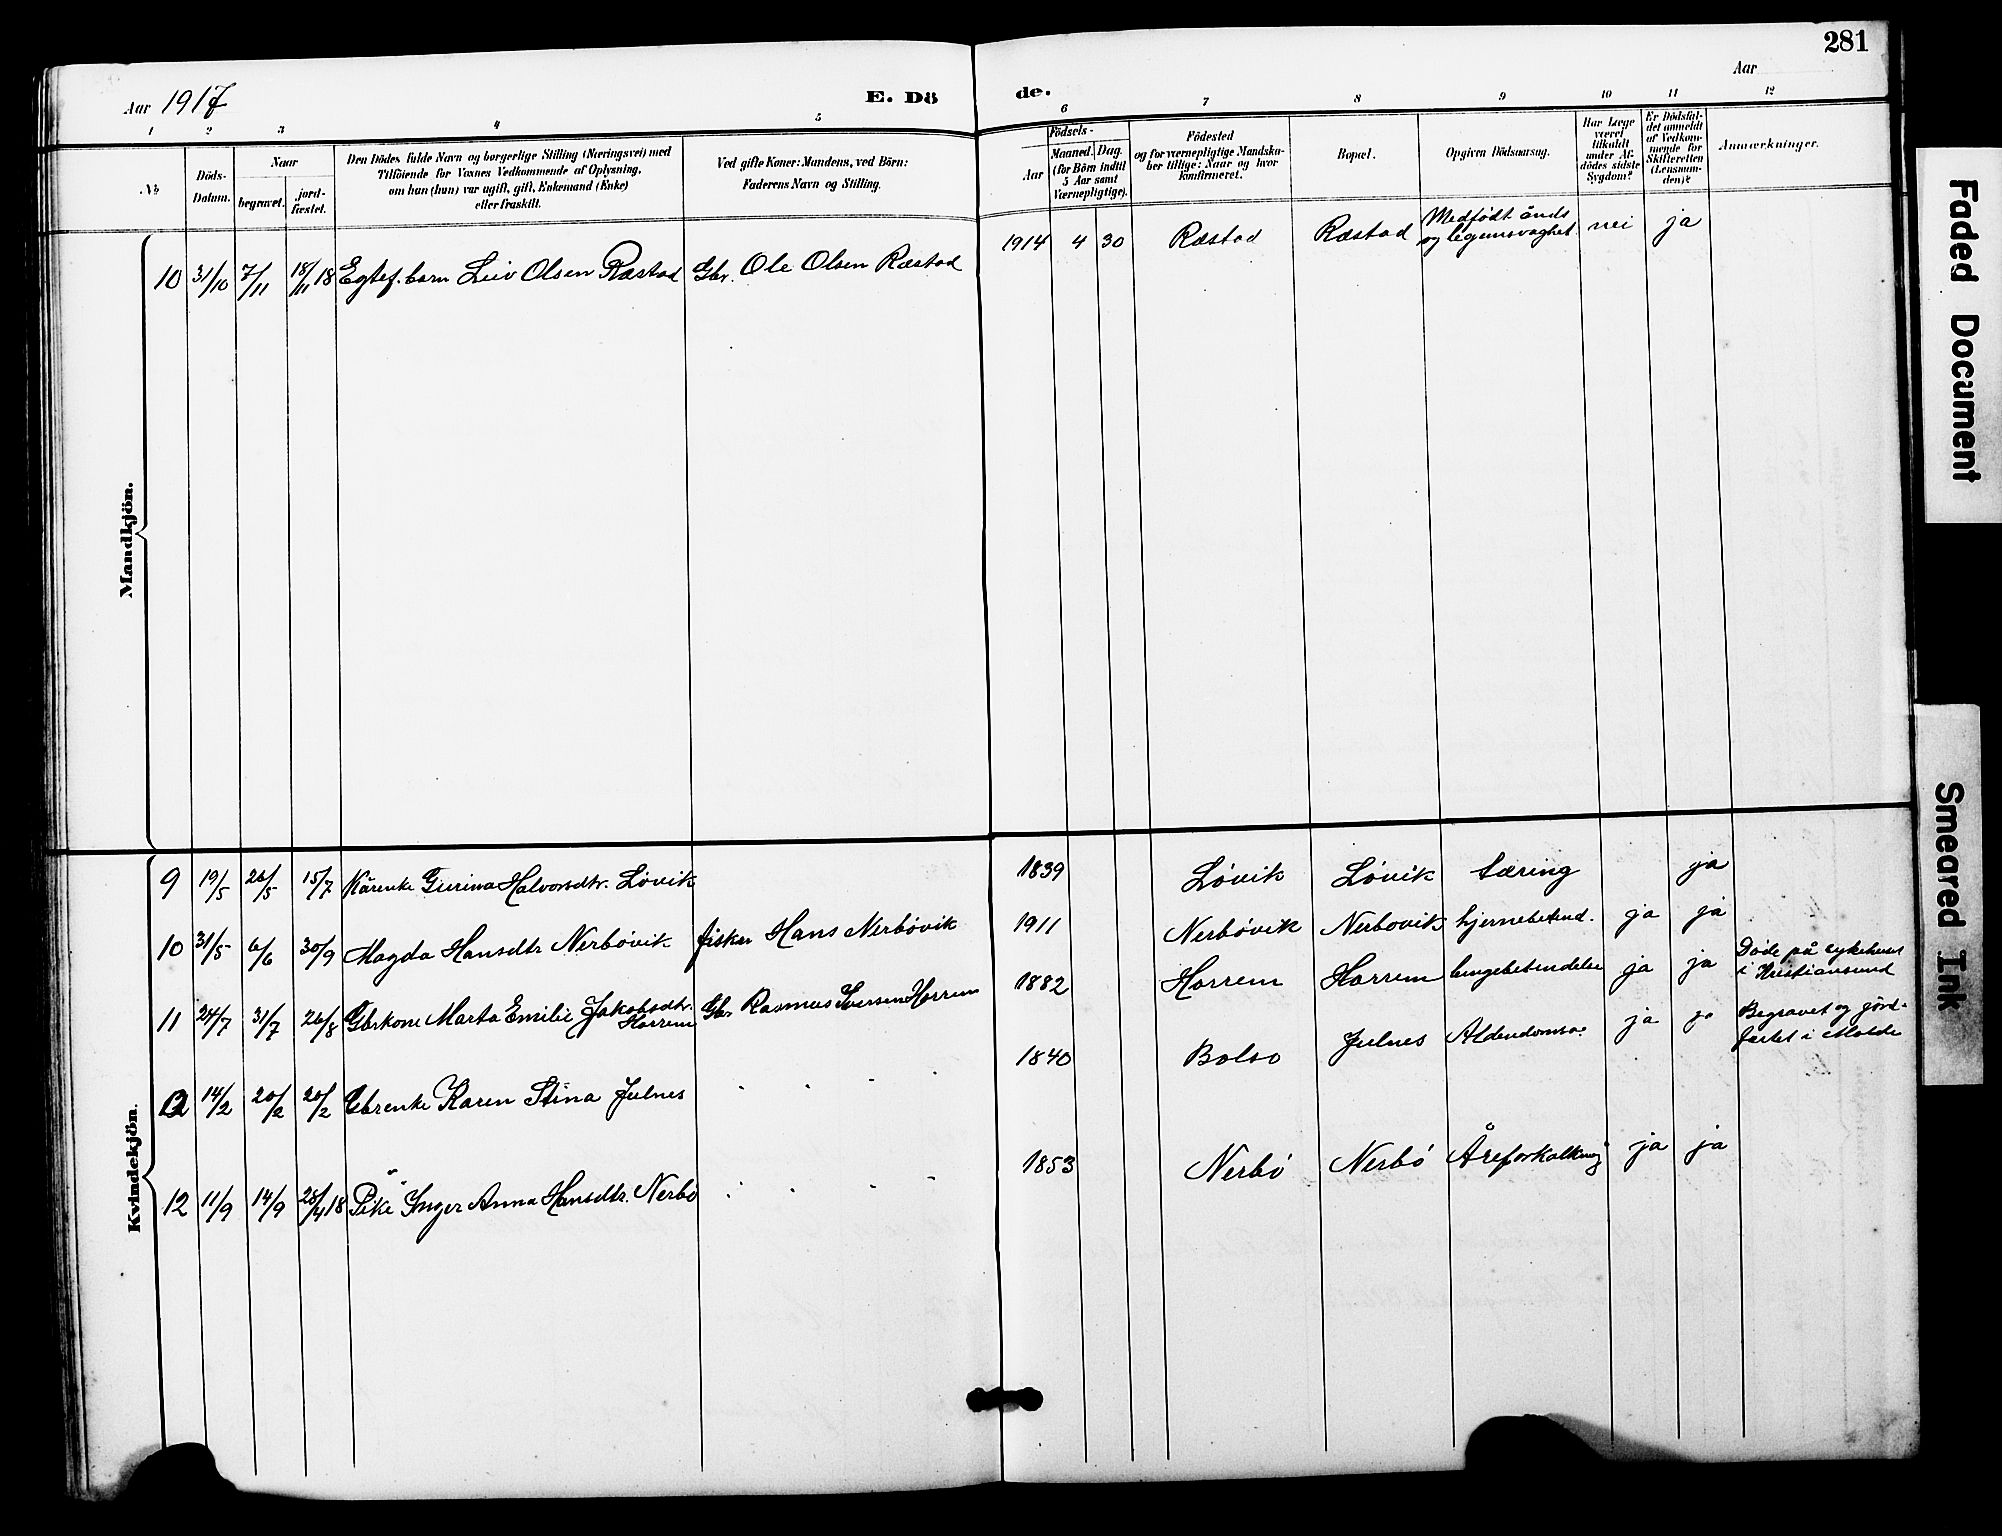 281
Aar 1917
E. Dö
de.
Aar
1 2 3 4 5 6 7 8 9 10 11 12
№
Döds-
Datum.
Naar
begravet.
jord-
fæstet.
Den Dödes fulde Navn og borgerlige Stilling (Næringsvei) med
Tilföiende for Voxnes Vedkommende af Oplysning,
om han (hun) var ugift, gift, Enkemand (Enke)
eller fraskilt.
Ved gifte Koner: Mandens, ved Börn:
Faderens Navn og Stilling.
Födsels-
Aar
Maaned. Dag.
(for Börn indtil
5 Aar samt
Værnepligtige).
Födested
og for værnepligtige Mandska-
ber tillige: Naar og hvor
konfirmeret.
Bopæl.
Opgiven Dödsaarsag.
Har Læge
været
tilkaldt
under Af-
dødes sidste
Sygdom?
Er Dödsfal-
det anmeldt
af Vedkom-
mende for
Skifteretten
(Lensman-
den)?
Anmærkninger.
Mandkjön.
10 31/10 7/11 18/11 18 Egtef. barn Leiv Olsen Ræstad Gbr. Ole Olsen Ræstad 1914 4 30 Ræstad Ræstad Medfödt ånds
og legemsvaghet nei ja
Kvindekjön.
9 19/5 26/5 15/7 Kårenke Gurina Halvorsdtr. Lövik 1839 Lövik Lövik tæring ja
10 31/5 6/6 30/9 Magda Hansdtr Nerbövik fisker Hans Nerbövik 1911 Nerbövik Nerbövik hjernebetend. ja ja
11 24/7 31/7 26/8 Gbrkone Marta Emilie Jakobsdtr.
Harrem Gbr Rasmus Iversen Harrem 1882 Harrem Harrem lungebetendelse ja ja Döde på sykehuset
i Kristiansund
12 14/2 20/2 20/2 Gbrenke Karen Stina Julnes 1840 Bolsö Julnes Alderdomss. ja ja Begravet og jord-
fæstet i Molde
12 11/9 14/9 28/4 18 Pike Inger Anna Hansdtr. Nerbö 1853 Nerbö Nerbö Åreforkalkning ja ja
Faded Document
Smeared Ink